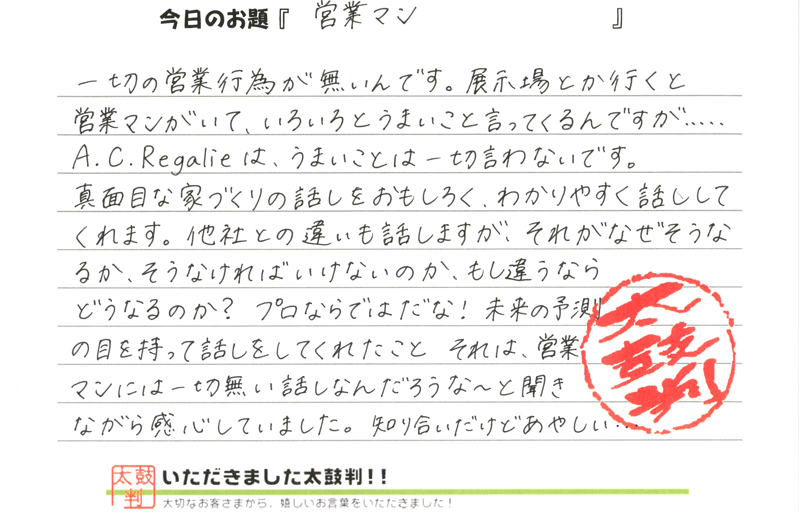 今日のお題『 営業マン 』
一切の営業行為が無いんです。展示場とか行くと
営業マンがいて、いろいろとうまいこと言ってくるんですが.....
A.C.Regalieは、うまいことは一切言わないです。
真面目な家づくりの話しをおもしろく、わかりやすく話しして
くれます。他社との違いも話しますが、それがなぜそうな
るか、そうなければいけないのか、もし違うなら
どうなるのか？ プロならではだな！ 未来の予測
の目を持って話しをしてくれたこと それは、営業
マンには一切無い話しなんだろうな〜と聞き
ながら感心していました。知り合いだけどあやしい…
太鼓判
太鼓判
いただきました太鼓判！！
大切なお客さまから、嬉しいお言葉をいただきました！